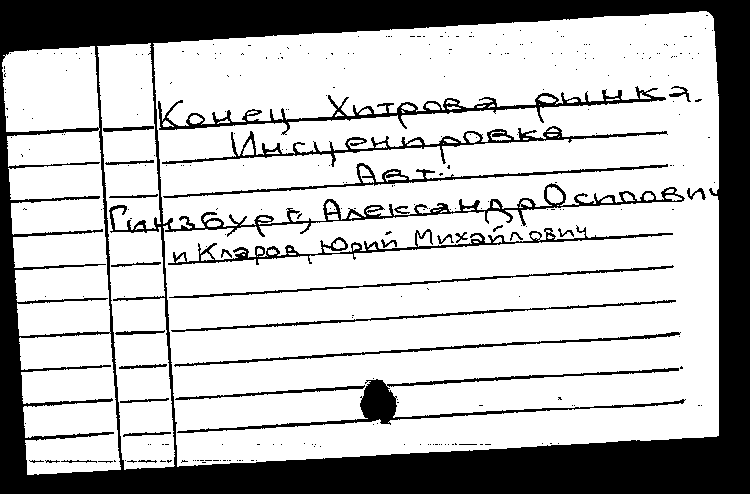 Конец Хитрова рынка.
Инсценировка.
Авт.:
Гинзбург, Александр Осипович
и Кларов, Юрий Михайлович